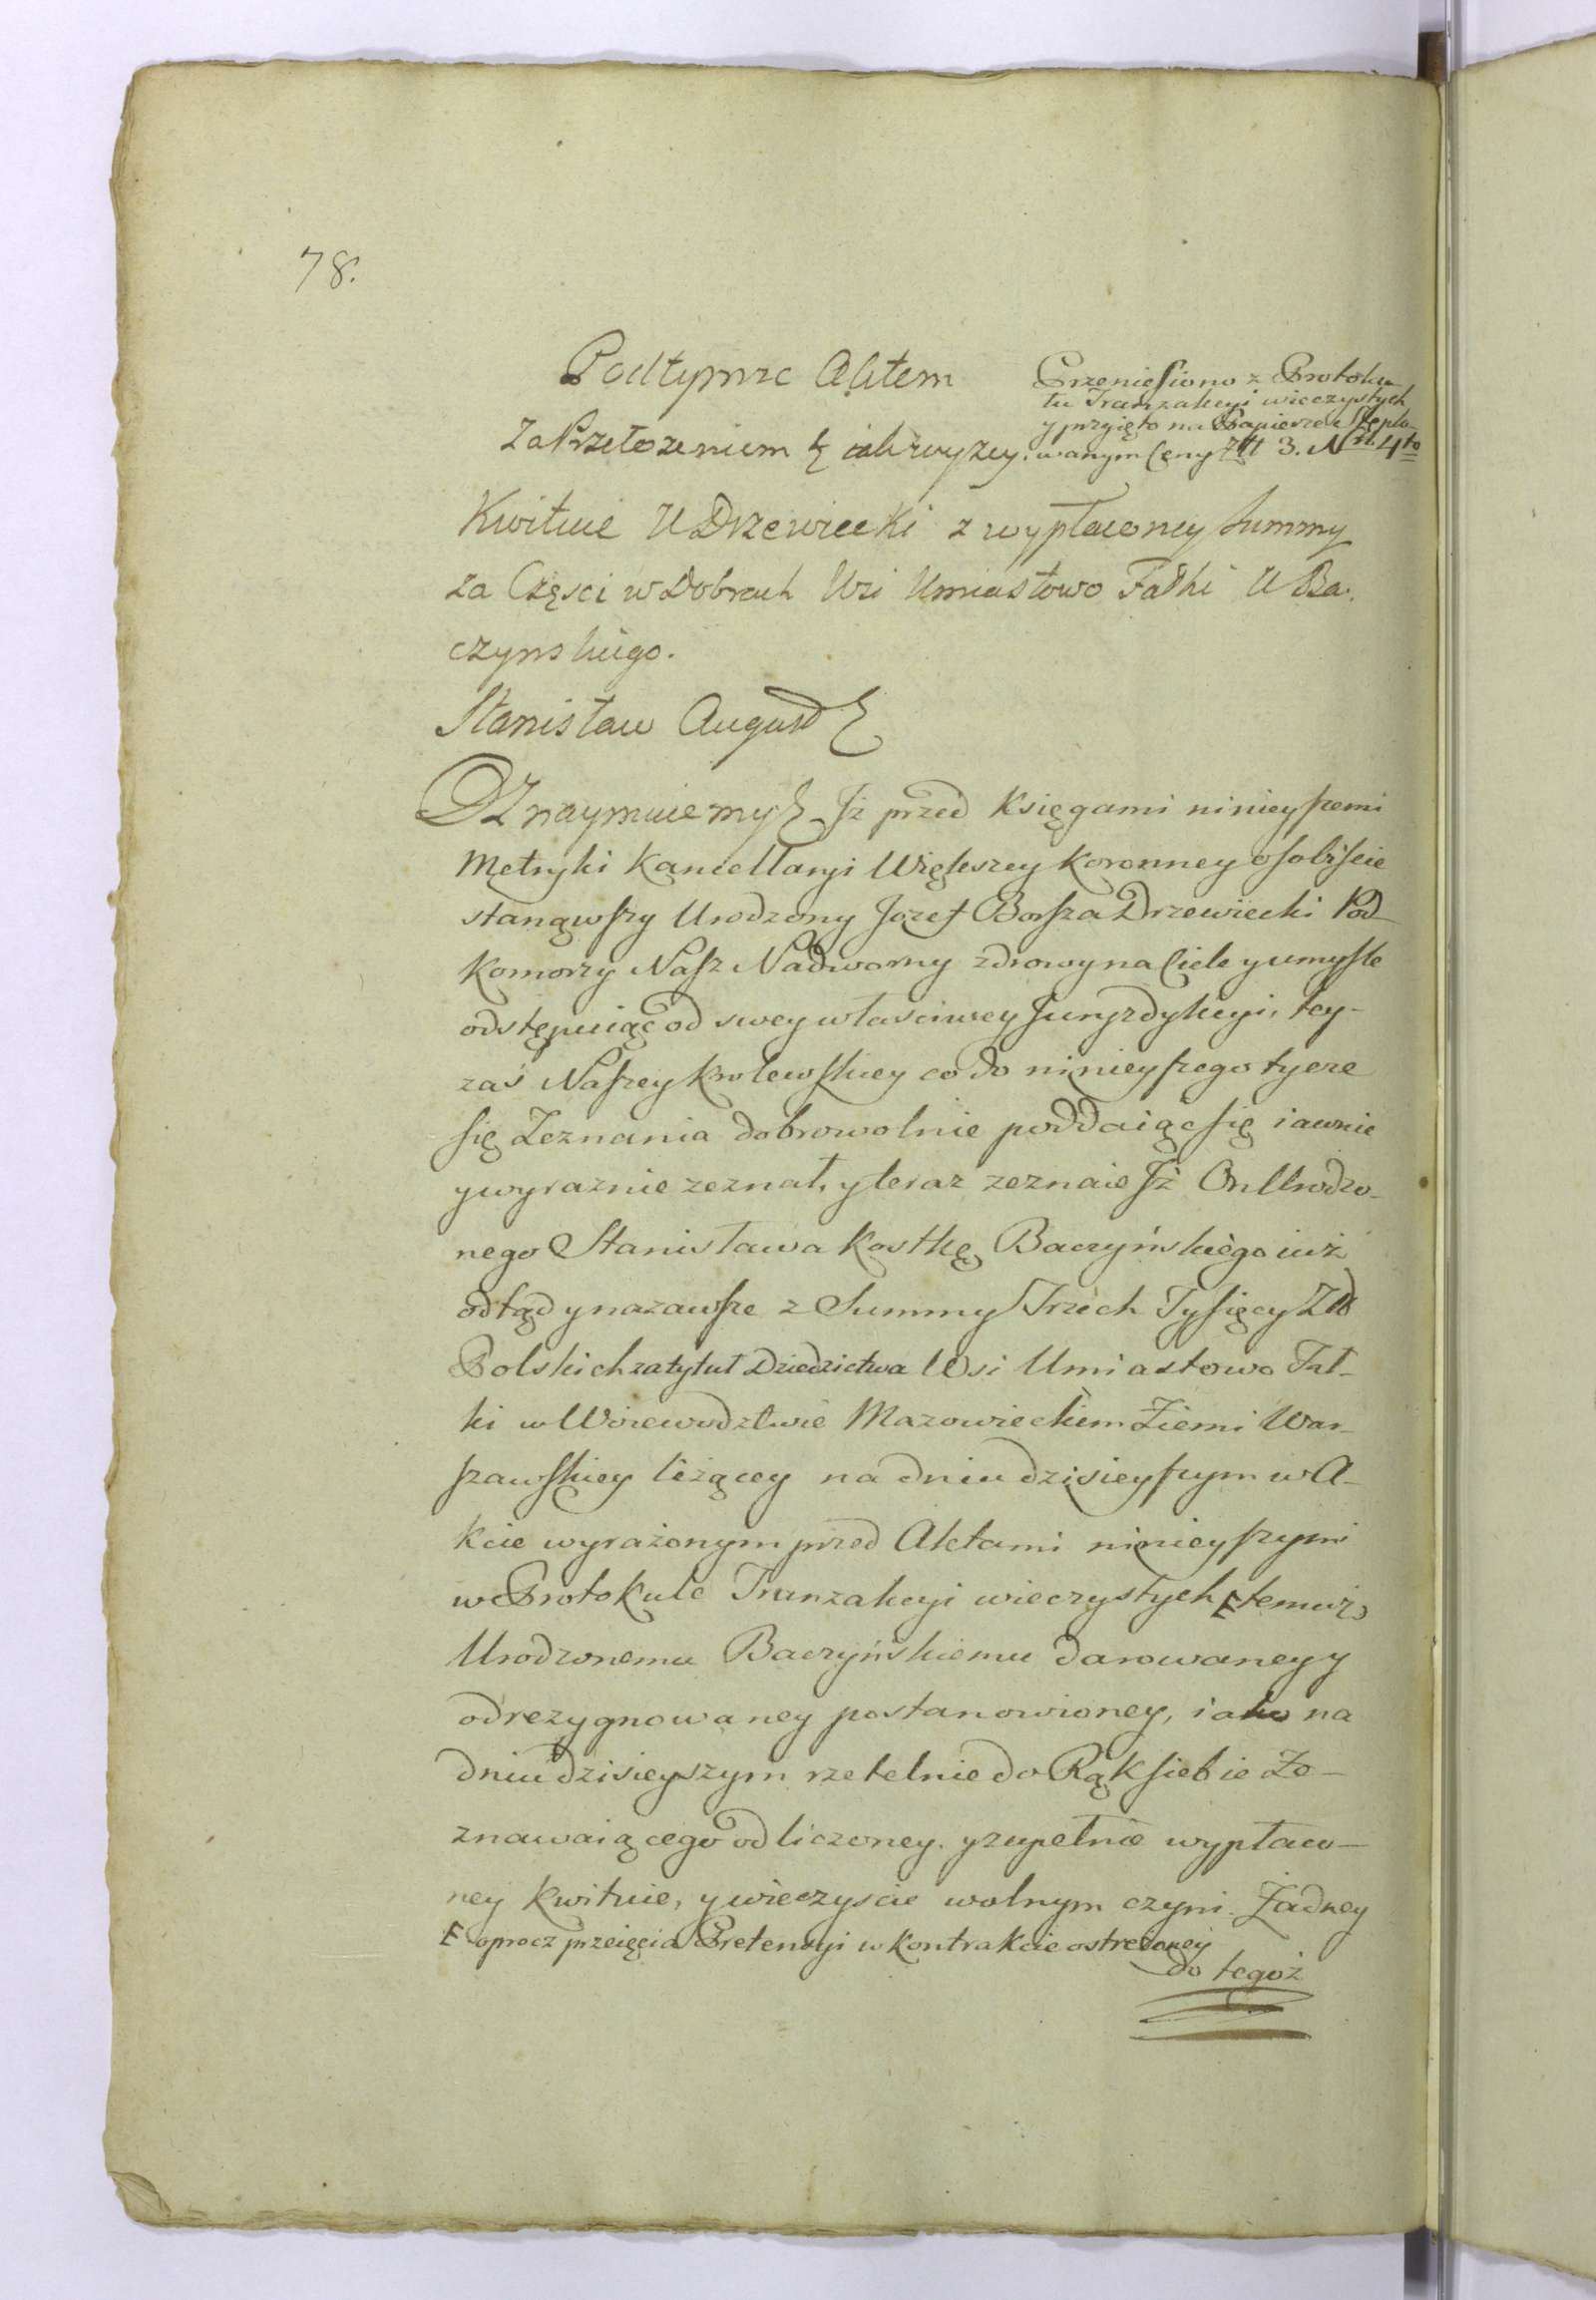 78.
Pod tymże Aktem
Za Przełożeniem & iak wyzey.
Przeniesiono z Protoku-
łu Tranzakcyi wieczystych
y przyięto na Papierze Stęplo-
wanym Ceny Złł 3. Nro 4to
Kwituie U Drzewiecki z wypłaconey Summy
za Części w Dobrach Wsi Umiastowo Fałki U Ba-
czynskiego.
Stanisław August &
Oznaymuiemy & Jż przed Księgami ninieyszemi
Metryki Kancellaryi Większey Koronney osobiscie
stanąwszy Urodzony Jozef Borsza Drzewiecki Pod-
komorzy Nasz Nadworny zdrowy na Ciele y umysle
odstępuiąc od swey własciwey Juryzdykcyi, tey-
zaś Naszey Krolewskiey co do ninieyszego tycze
się Zeznania dobrowolnie poddaiąc się iawnie
y wyraznie zeznał, y teraz zeznaie Jż On Urodzo-
nego Stanisława Kostkę Baczyńskiego iuż
odtąd y nazawsze z Summy Trzech Tysięcy Złł
Polskich za tytuł Dziedzictwa Wsi Umiastowo Fał-
ki w Woiewodztwie Mazowieckiem Ziemi War-
szawskiey leżącey na dniu dzisieyszym w A-
kcie wyrażonym przed Aktami ninieyszymi
w Protokule Tranzakcyi wieczystych F temuż
Urodzonemu Baczyńskiemu darowaney y
odrezygnowaney postanowioney, iako na
dniu dzisieyszym rzetelnie do Rąk siebie Ze-
znawaiącego odliczoney, y zupełnie wypłaco-
ney kwituie, y wieczyscie wolnym czyni. Żadney
F oprocz przeięcia Pretensyi w Kontrakcie ostrzeżoney
do tegoż